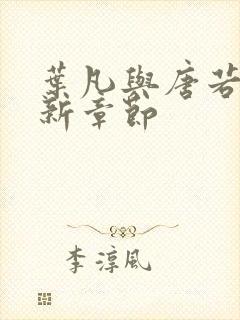 葉凡與唐若
新章節
李淳風